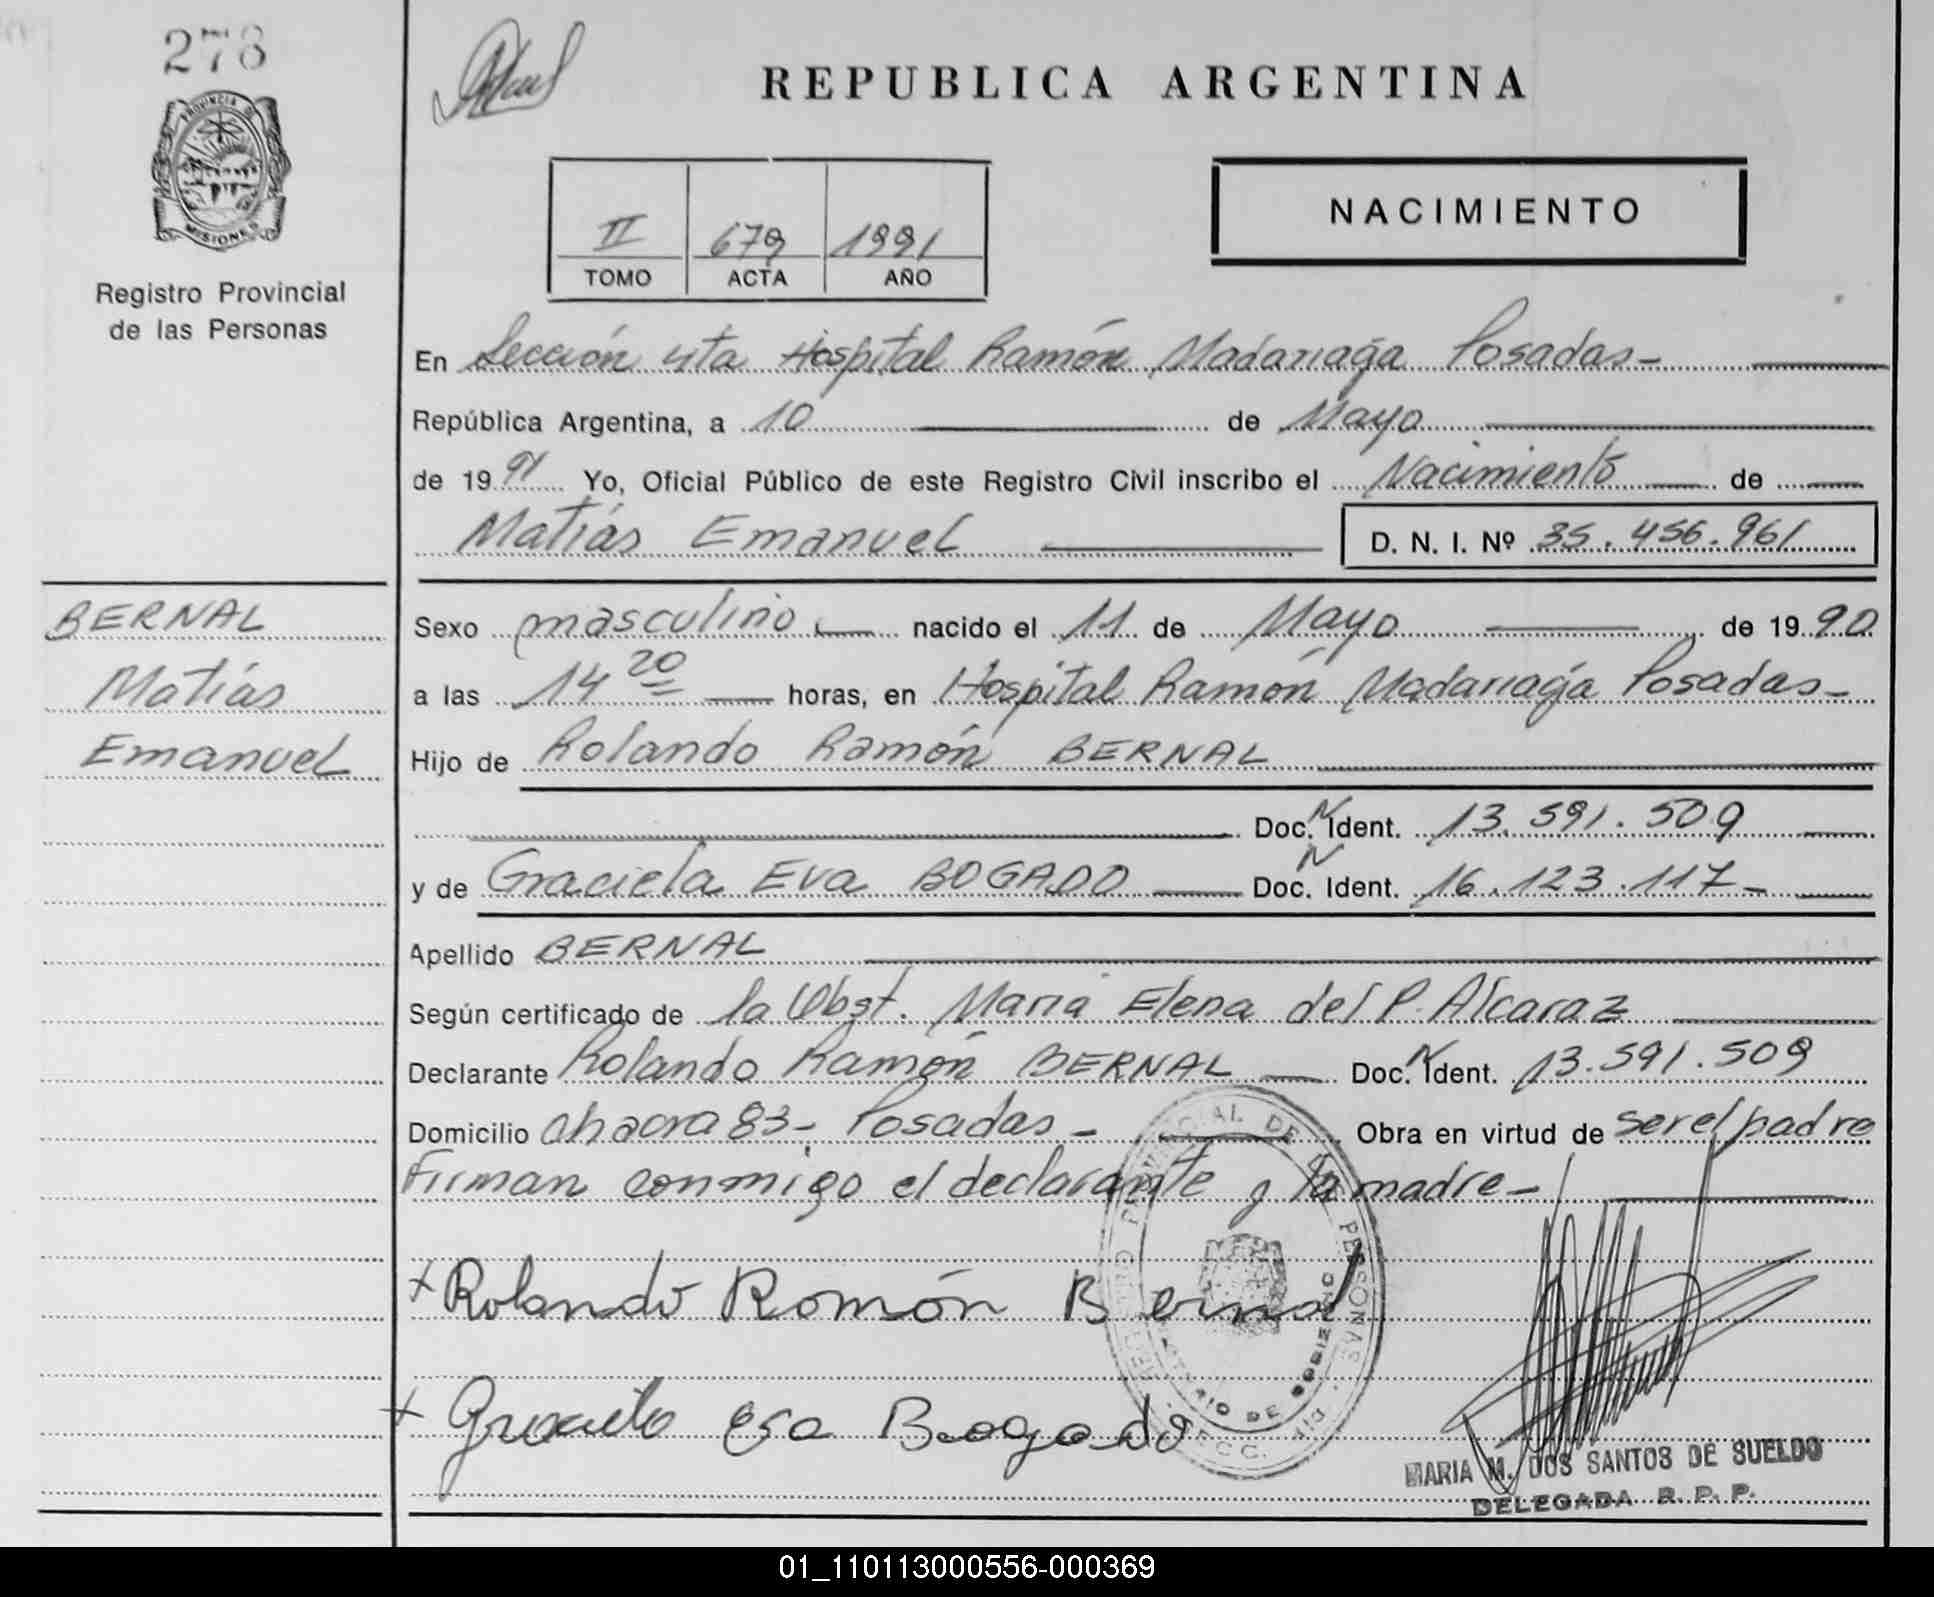 278
REPUBLICA ARGENTINA
PROVINCIA DE
MISIONES
Registro Provincial
de las Personas
II 679 1991
TOMO ACTA AÑO
NACIMIENTO
En Sección 4ta Hospital Ramón Madariaga Posadas-
República Argentina, a 10 de Mayo
de 1991 Yo, Oficial Público de este Registro Civil inscribo el Nacimiento de
Matías Emanuel D. N. I. Nº 35.456.961
BERNAL
Matías
Emanuel
Sexo masculino nacido el 11 de Mayo de 1990
a las 14 20 horas, en Hospital Ramón Madariaga Posadas-
Hijo de Rolando Ramón BERNAL
Doc. N Ident. 13.591.509
y de Graciela Eva BOGADO Doc. N Ident. 16.123.117-
Apellido BERNAL
Según certificado de la Obst. Maria Elena del P. Alcaraz
Declarante Rolando Ramón BERNAL Doc. N Ident. 13.591.509
Domicilio chacra 83-, Posadas- Obra en virtud de ser el padre
Firman conmigo el declarante y la madre-
+ Rolando Ramón Bernal
+ Graciela Eva Bogado
MARIA M. DOS SANTOS DE SUELDO
DELEGADA R. P. P.
01_110113000556-000369